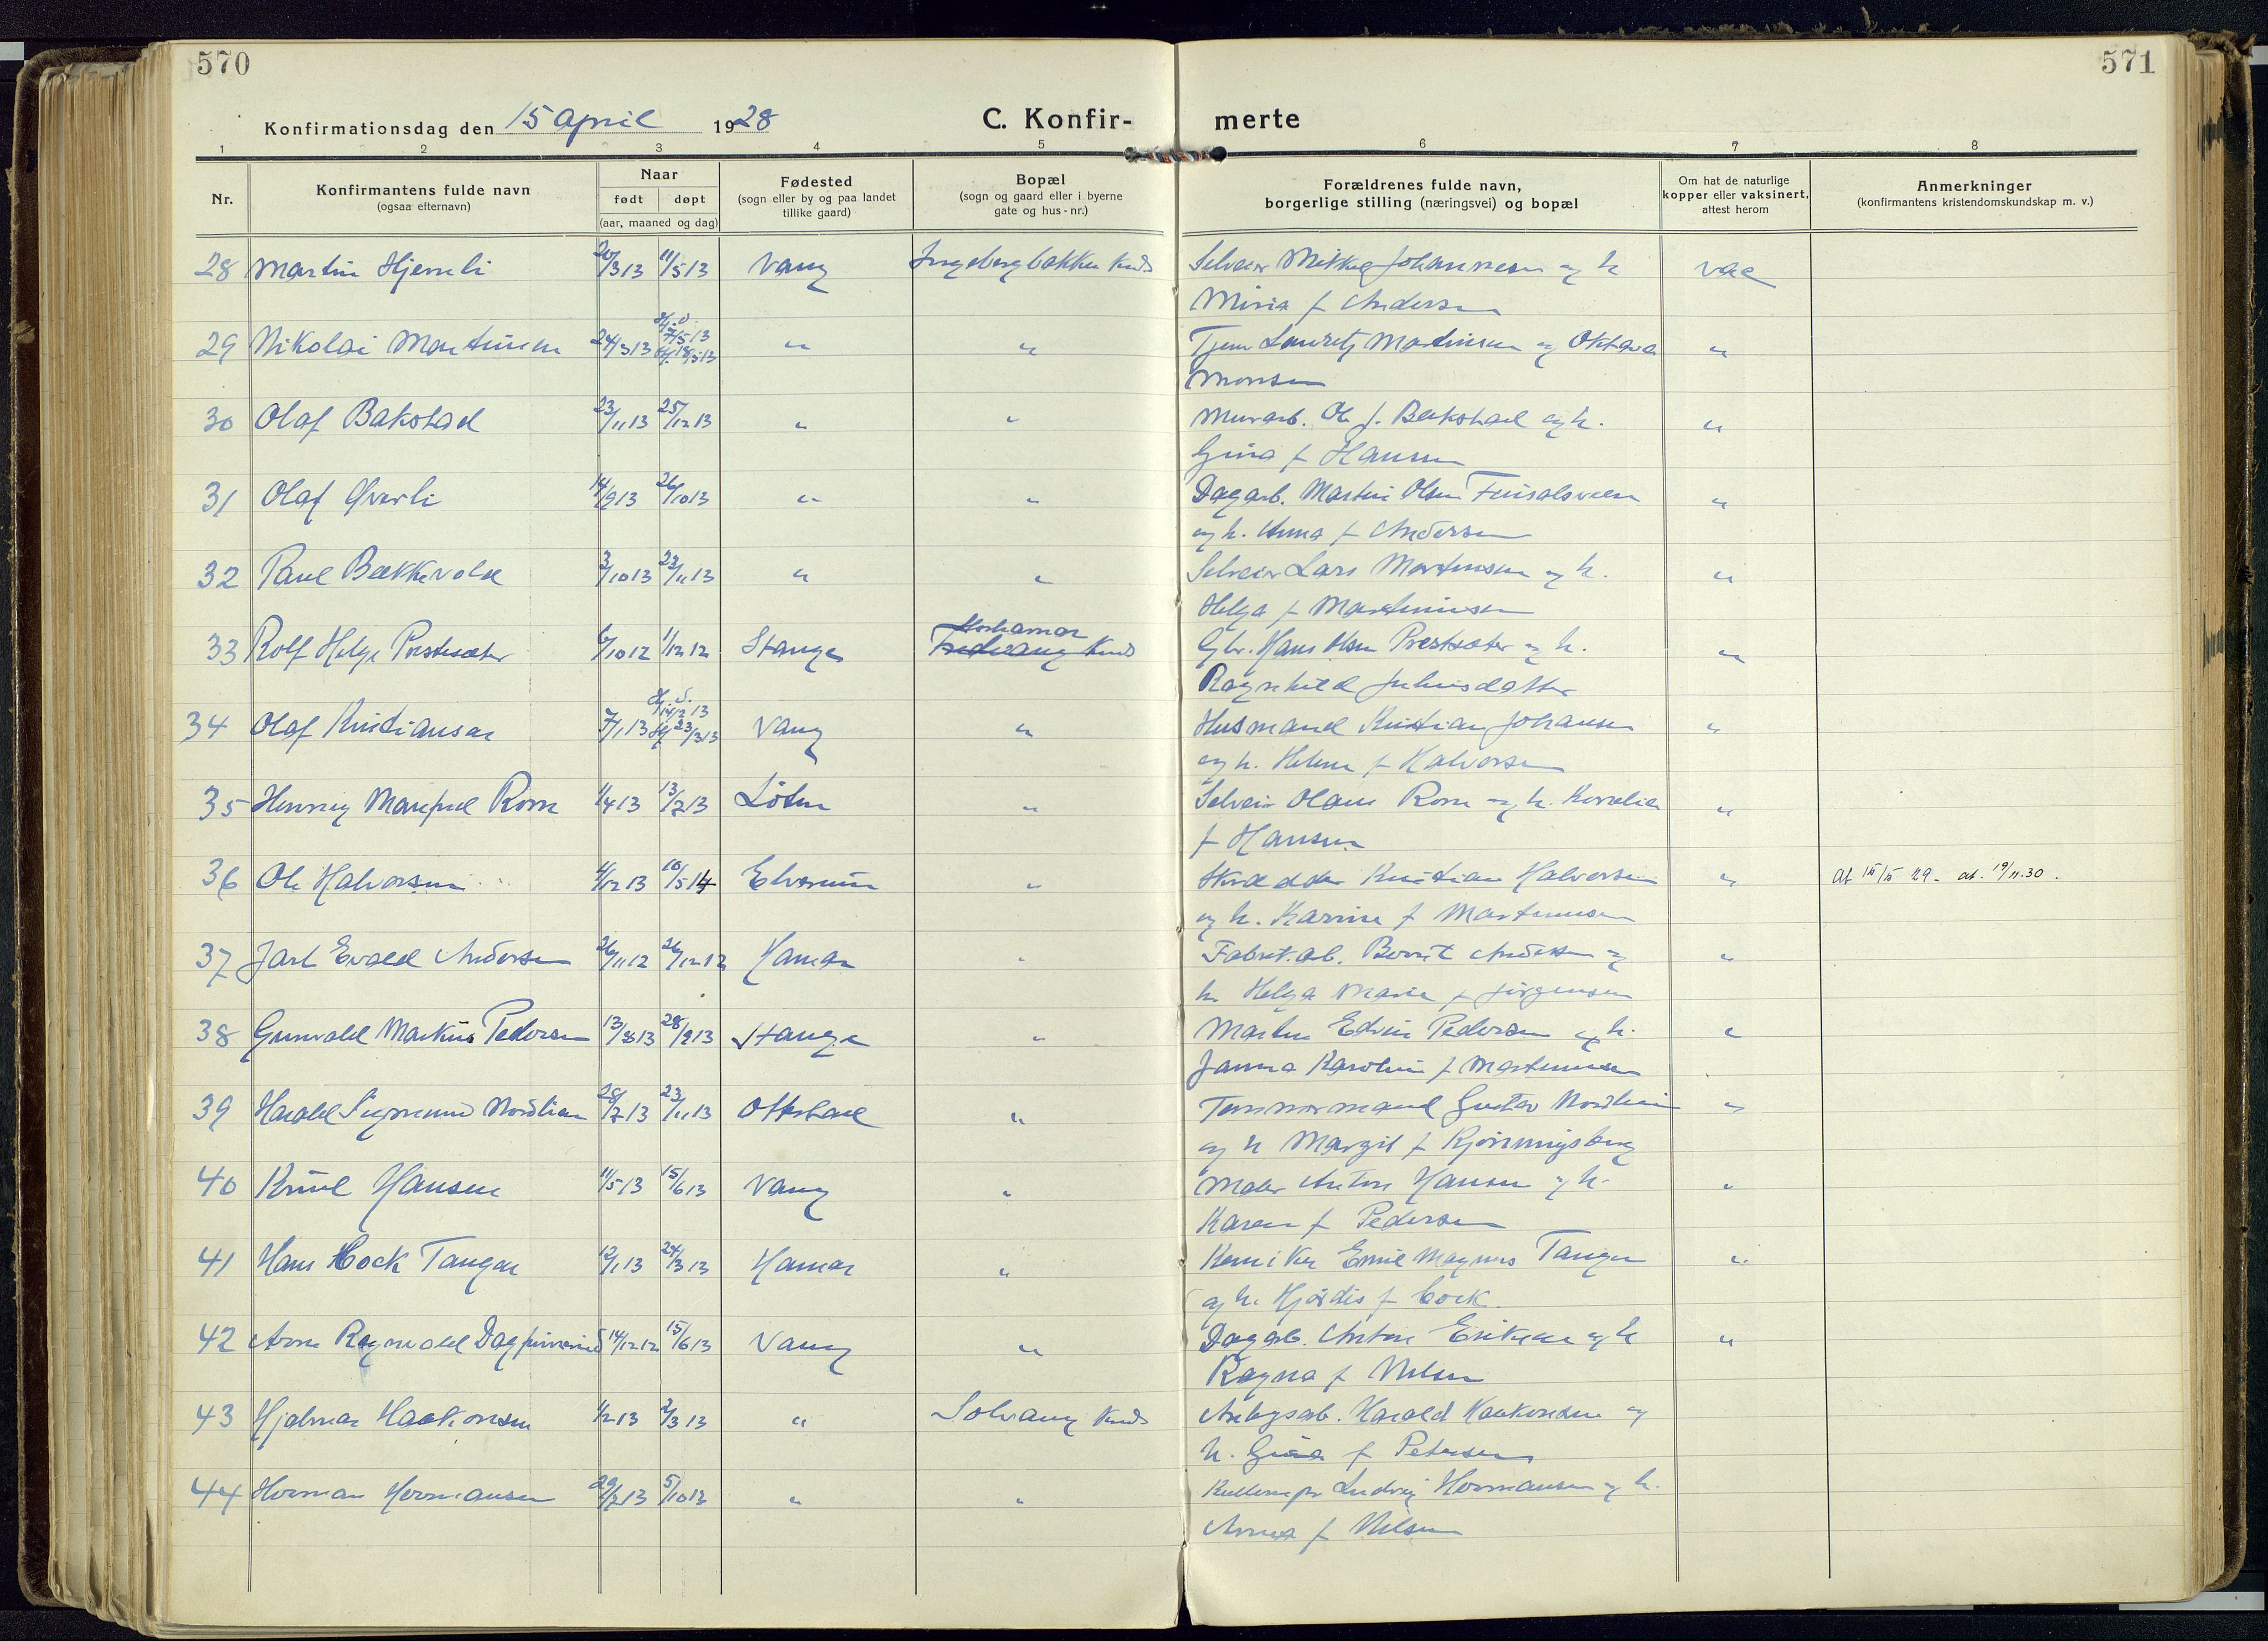 570
571
Konfirmationsdag den 15 April 1928
C. Konfir-
merte
1 2 3 4 5 6 7 8
Nr.
Konfirmantens fulde navn
(ogsaa efternavn)
Naar
født døpt
(aar, maaned og dag)
Fødested
(sogn eller by og paa landet
tillike gaard)
Bopæl
(sogn og gaard eller i byerne
gate og hus-nr.)
Forældrenes fulde navn,
borgerlige stilling (næringsvei) og bopæl
Om hat de naturlige
kopper eller vaksinert,
attest herom
Anmerkninger
(konfirmantens kristendomskundskap m. v.)
28 Martin Hjemli 20/3 13 11/5 13 Vang Ingebergbakken Selveier Mikkel Johannesen og h vac
f Andersen
29 Nikolai Martinsen 24/3 13 Hj. d. 7/5 13 18/5 13 " " Lauritz Martinsen og Oktava "
Monsen
30 Olaf Bakstad 23/11 13 25/12 13 " " Murarb. Ole J. Bakstad og h. "
Gina f Hansen
31 Olaf Øverli 14/9 13 26/10 13 " " Dagarb. Martin Olsen "
og h. Anna f Andersen
32 Paul Bækkevold 3/10 13 23/11 13 " " Selveier Lars Martinsen og h. "
Helga f Martinsen
33 Rolf Helge Prestesæter 6/10 12 1/12 12 Stange Gbr. Hans Olsen Prestsæter og h. "
Ragnhild Juliusdatter
34 Olaf Kristiansen 7/1 13 Hj. d. 14/2 13 23/3 13 Vang " Husmand Kristian Johansen "
og h. Helene f Halvorsen
35 Henning Manfred Rom 1/4 13 13/7 13 Löten " Selveier Olaus Rom og h. Kornelia "
f Hansen
36 Ole Halvorsen 4/12 13 10/5 14 Elverum " Skrædder Kristian Halvorsen " At 15/5 29. at. 19/11.30.
og h. Karine f Martinsen
37 Jarl Evald Andersen 26/11 12 26/12 12 Hamar " Fabrik.arb. Bernt Andersen og "
h. Helga Marie f Jørgensen
38 Gunvald Markus Pedersen 13/8 13 28/9 13 Stange " Martin Edvin Pedersen og h. "
Janna Karoline f Martinsen
39 Harald Sigmund Nordlien 28/7 13 23/11 13 Ottestad " Tømmermand Gustav Nordlien "
og h Margit f
40 Emil Hansen 11/5 13 15/6 13 Vang " Maler Anton Hansen og h. "
Karen f Pedersen
41 Hans Cock Tangen 12/1 13 24/3 13 Hamar " Kemiker Emil Magnus Tangen "
og h. Hjördis f Cock.
42 Arne Ragnvald Dagfinrud 14/12 12 15/6 13 Vang " Dagarb. Anton Eriksen og h "
Ragna f Nilsen
43 Hjalmar Haakonsen 1/2 13 2/3 13 " Solvang Anlegsarb. Harald Haakonsen og
h. Gina f Petersen
44 Herman Hermansen 29/7 13 5/10 13 " " Ludvig Hermansen og h.
Anna f Nilsen